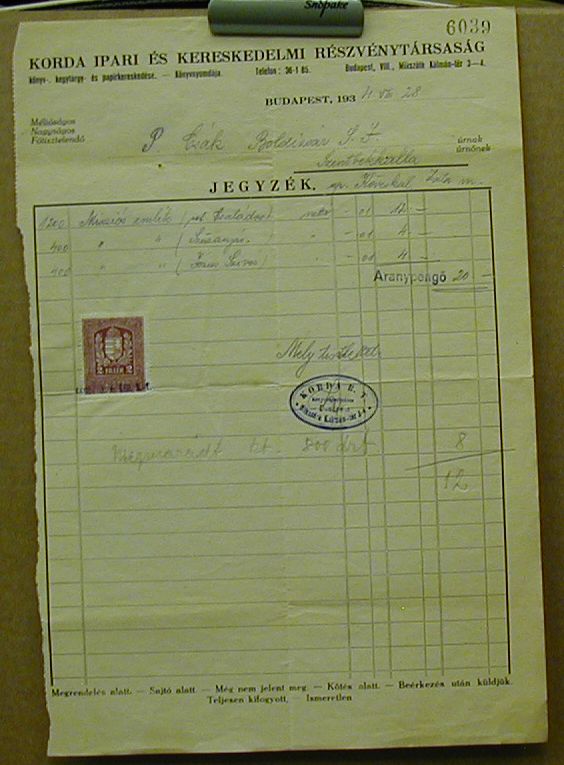 Snopake
6039
KORDA IPARI ÉS KERESKEDELMI RÉSZVÉNYTÁRSASÁG
könyv-, kegytárgy- és papirkereskedése. — Könyvnyomdája. Telefon: 36-1-85. Budapest, VIII., Mikszáth Kálmán-tér 3—4.
BUDAPEST, 193
28
Méltóságos
Nagyságos
Főtisztelendő
P Csák Boldizsár S. J.
úrnak
úrnőnek
Szentbékkálla
JEGYZÉK. Zala m.
1200 Missiós emlék 12 —
400 " " — 01 4 —
400 " " — 01 4 —
Aranypengő 20 —
2 FILLÉR 2
KORDA R. T.
Budapest
Mikszáth Kálmán-tér 3-4
800 drt 8
12
Megrendelés alatt. — Sajtó alatt — Még nem jelent meg. — Kötés alatt. — Beérkezés után küldjük.
Teljesen kifogyott. — Ismeretlen